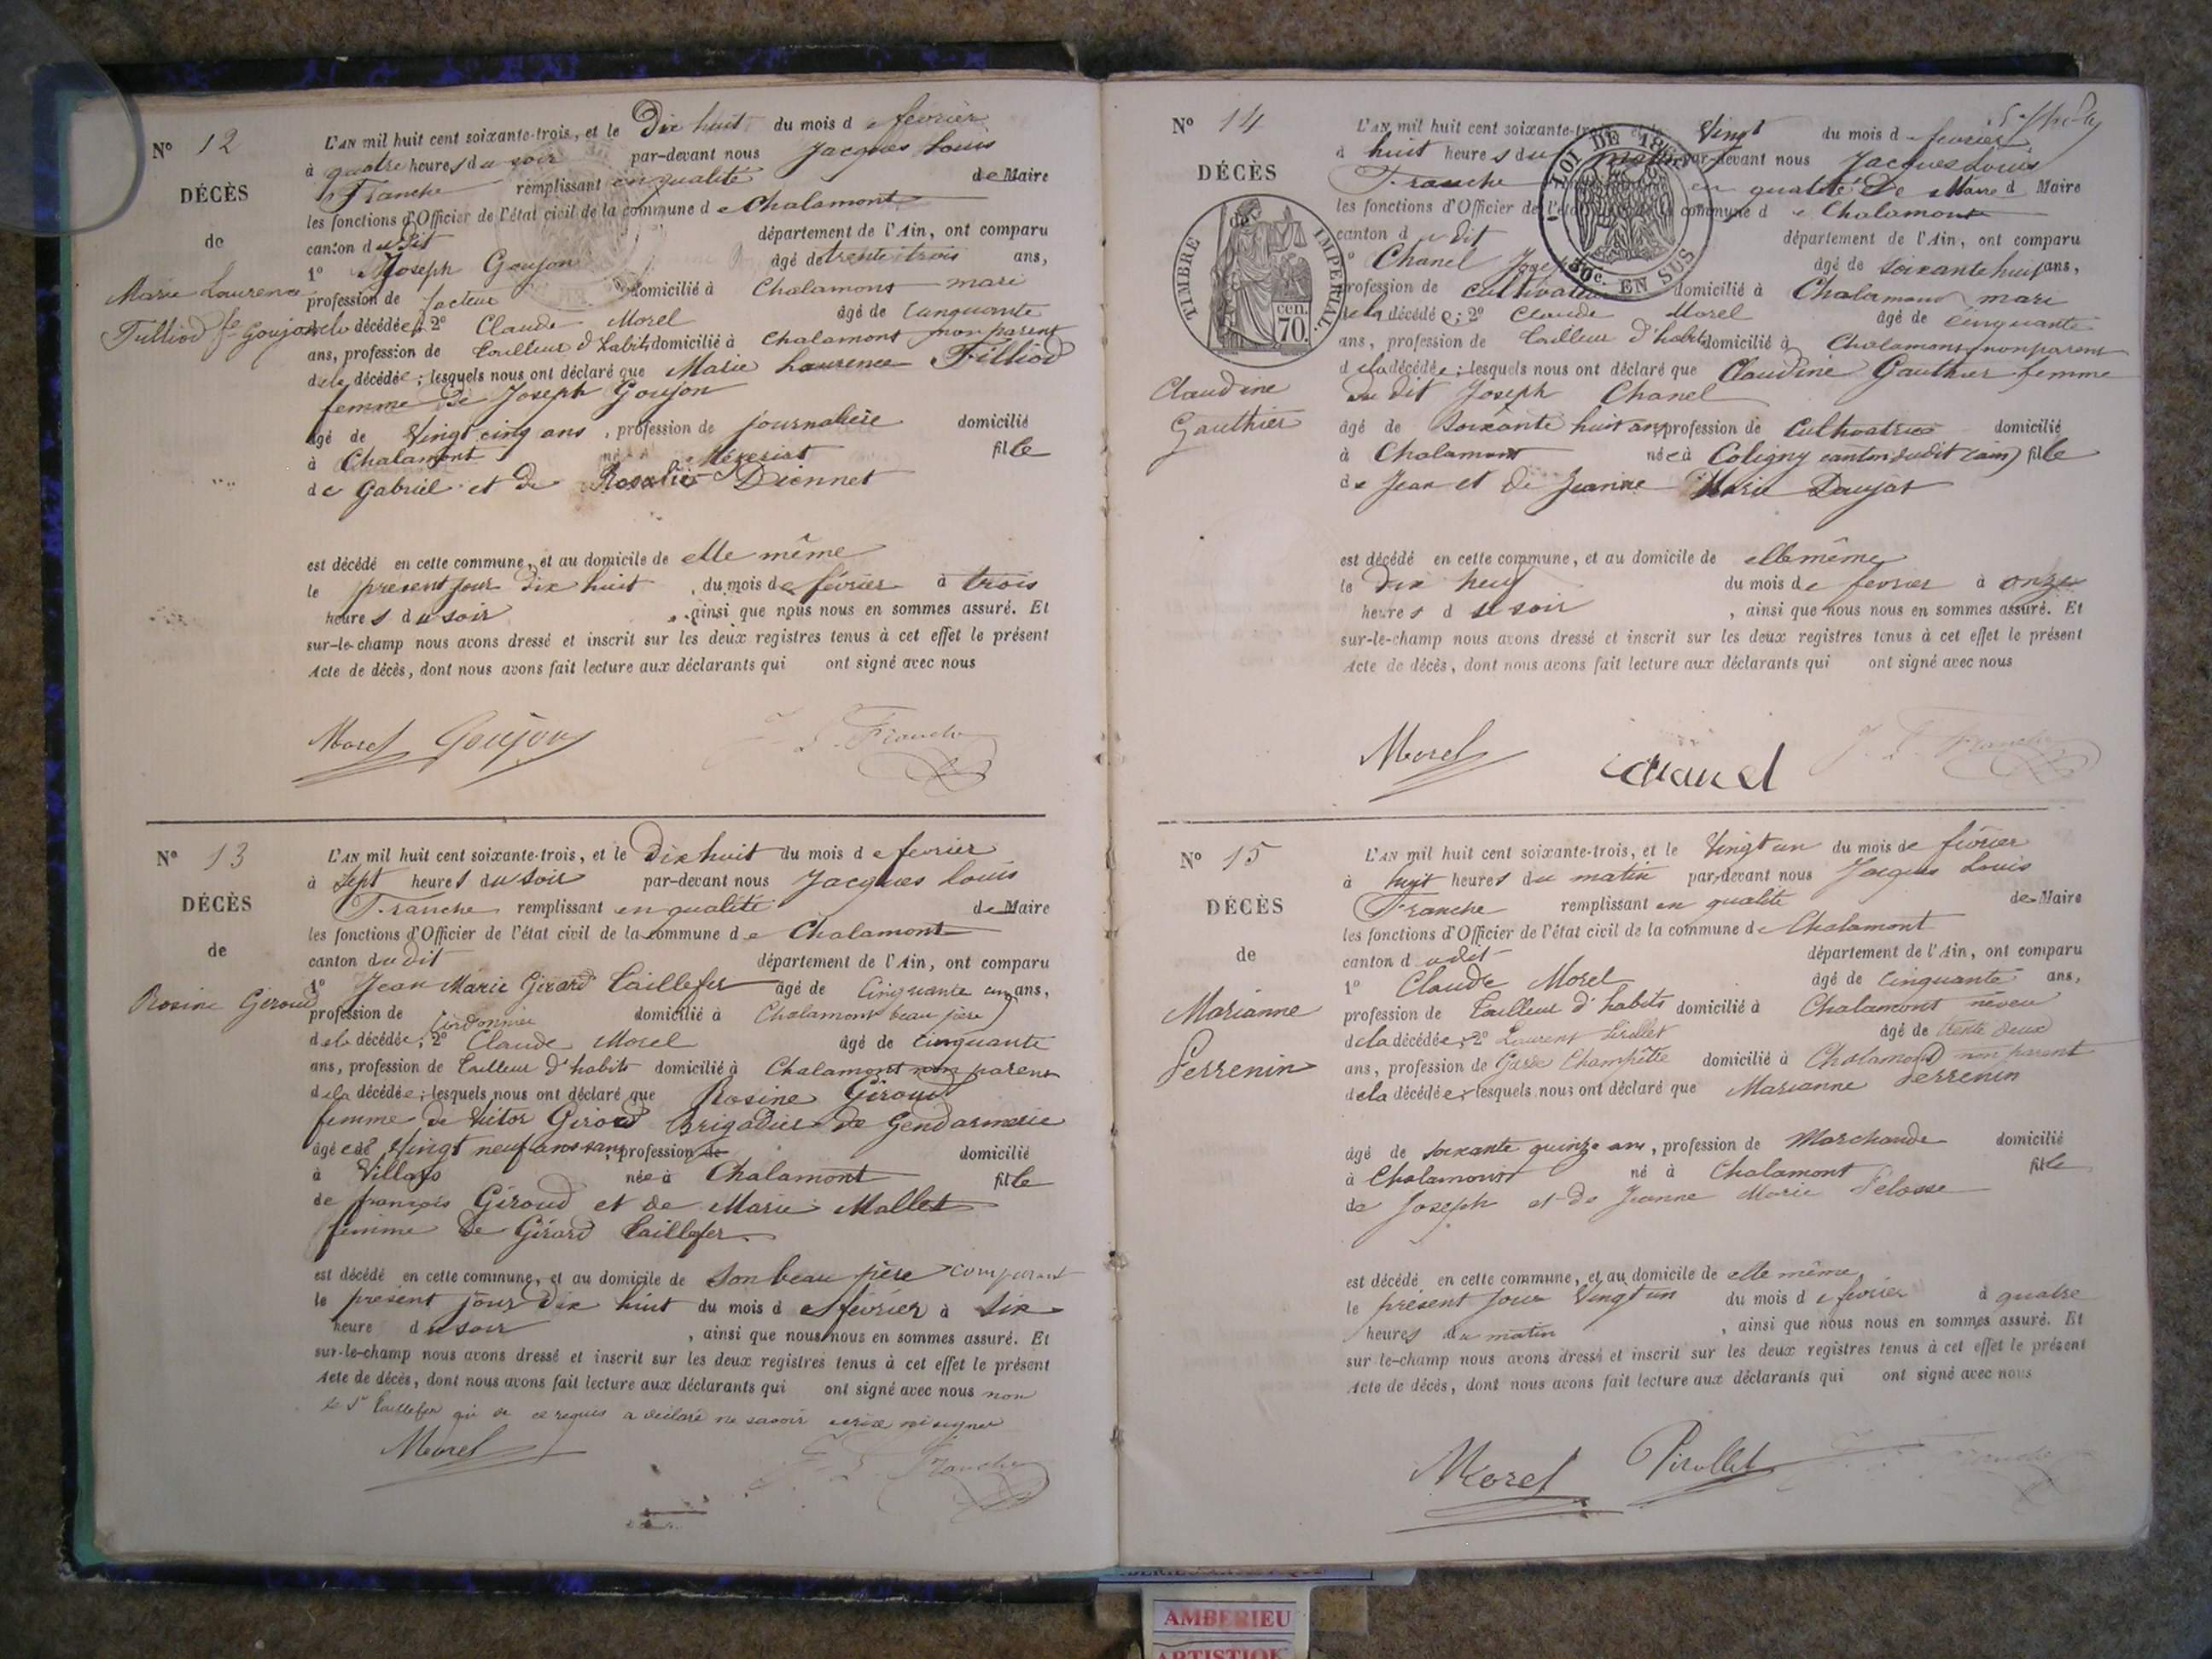 N° 12
DÉCÈS
de
Marie Laurence
Filliod fe Goujon
L'AN mil huit cent soixante-trois, et le Dix huit du mois de février
à quatre heures du soir par-devant nous Jacques Louis
Franche remplissant en qualité de Maire
les fonctions d'Officier de l'état civil de la commune de Chalamont
canton du dit département de l'Ain, ont comparu
1° Joseph Goujon âgé de trente trois ans,
profession de facteur domicilié à Chalamont mari
de la décédée; 2° Claude Morel âgé de Cinquante
ans, profession de Tailleur d'habits domicilié à Chalamont non parent
de la décédée; lesquels nous ont déclaré que Marie Laurence Filliod
femme de Joseph Goujon
âgé de Vingt cinq ans, profession de journalière domicilié
à Chalamont né à Mézériat fille
de Gabriel et de Rosalie Diennet
est décédé en cette commune, et au domicile de elle même
le présent jour dix huit, du mois de février à trois
heures du soir, ainsi que nous nous en sommes assuré. Et
sur-le-champ nous avons dressé et inscrit sur les deux registres tenus à cet effet le présent
Acte de décès, dont nous avons fait lecture aux déclarants qui ont signé avec nous
Morel Goujon J. L. Franche
N° 13
DÉCÈS
de
Rosine Giroud
L'AN mil huit cent soixante-trois, et le Dix huit du mois de février
à sept heures du soir par-devant nous Jacques Louis
Franche remplissant en qualité de Maire
les fonctions d'Officier de l'état civil de la commune de Chalamont
canton du dit département de l'Ain, ont comparu
1° Jean Marie Girard Taillefer âgé de Cinquante cinq ans,
profession de Cordonnier domicilié à Chalamont beau père
de la décédée; 2° Claude Morel âgé de cinquante
ans, profession de Tailleur d'habits domicilié à Chalamont non parent
de la décédée; lesquels nous ont déclaré que Rosine Giroud
femme de Victor Giroud Brigadier de Gendarmerie
âgé de Vingt neuf ans sans profession de domicilié
à Villars née à Chalamont fille
de françois Giroud et de Marie Mallet
femme de Girard Taillefer
est décédé en cette commune, et au domicile de son beau père comparant
le présent jour dix huit du mois de février à six
heure du soir, ainsi que nous nous en sommes assuré. Et
sur-le-champ nous avons dressé et inscrit sur les deux registres tenus à cet effet le présent
Acte de décès, dont nous avons fait lecture aux déclarants qui ont signé avec nous non
le Sr Taillefer qui de ce requis a déclaré ne savoir écrire ni signer
Morel J. L. Franche
N° 14
DÉCÈS
de
Claudine
Gauthier
TIMBRE IMPERIAL.
70 cen.
LOI DE 18
50c. EN SUS
L'AN mil huit cent soixante-trois, et le Vingt du mois de février
à huit heures du matin par-devant nous Jacques Louis
Franche en qualité De Maire d Maire
les fonctions d'Officier de l'état civil de la commune de Chalamont
canton du dit département de l'Ain, ont comparu
1° Chanel Joseph âgé de soixante huit ans,
profession de cultivateur domicilié à Chalamont mari
de la décédée; 2° Claude Morel âgé de cinquante
ans, profession de Tailleur d'habits domicilié à Chalamont non parent
de la décédée; lesquels nous ont déclaré que Claudine Gauthier femme
du dit Joseph Chanel
âgé de Soixante huit ans profession de Cultivatrice domicilié
à Chalamont née à Coligny canton dudit (ain) fille
de Jean et de Jeanne Marie Daujat
est décédé en cette commune, et au domicile de elle même
le Dix neuf du mois de février à onze
heures du soir, ainsi que nous nous en sommes assuré. Et
sur-le-champ nous avons dressé et inscrit sur les deux registres tenus à cet effet le présent
Acte de décès, dont nous avons fait lecture aux déclarants qui ont signé avec nous
Morel chanel J. L. Franche
N° 15
DÉCÈS
de
Marianne
Perrenin
L'AN mil huit cent soixante-trois, et le Vingt un du mois de février
à huit heures du matin par-devant nous Jacques Louis
Franche remplissant en qualité de Maire
les fonctions d'Officier de l'état civil de la commune de Chalamont
canton du dit département de l'Ain, ont comparu
1° Claude Morel âgé de Cinquante ans,
profession de Tailleur d'habits domicilié à Chalamont neveu
de la décédée; 2° Laurent Pirollet âgé de trente deux
ans, profession de Garde Champêtre domicilié à Chalamont non parent
de la décédée; lesquels nous ont déclaré que Marianne Perrenin
âgé de soixante quinze ans, profession de Marchande domicilié
à Chalamont né à Chalamont fille
de Joseph et de Jeanne Marie Pelosse
est décédé en cette commune, et au domicile de elle même
le présent jour Vingt un du mois de février à quatre
heures du matin, ainsi que nous nous en sommes assuré. Et
sur-le-champ nous avons dressé et inscrit sur les deux registres tenus à cet effet le présent
Acte de décès, dont nous avons fait lecture aux déclarants qui ont signé avec nous
Morel Pirollet
AMBERIEU
ARTISTIQUE